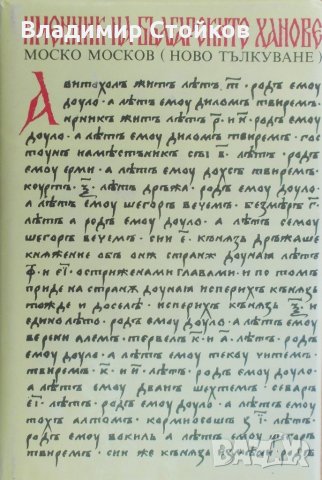 www.Bazar.bg
ИМЕННИК НА БЪЛГАРСКИТЕ ХАНОВЕ
МОСКО МОСКОВ (НОВО ТЪЛКУВАНЕ)
Авитохолъ житъ лѣтъ т҃ · родъ емоу
доуло · а лѣтъ емоу диломъ твиремъ ·
ирникъ житъ лѣтъ р҃ и н҃ · родъ емоу
доуло · а лѣтъ емоу диломъ твиремъ · гос
тоунъ намѣстьникъ сы в҃ лѣтъ · родъ
емоу ерми · а лѣтъ емоу дохсъ твиремъ ·
коуртъ з҃ лѣтъ дръжа · родъ емоу доуло ·
а лѣтъ емоу шегоръ вечемъ · безмѣръ г҃
лѣтъ а родъ емоу доуло · а лѣтъ семоу
шегоръ вечемъ · сии е҃ кънязъ дръжаше
княжение обь онѫ странѫ доунаıа лѣтъ
ф҃ и е҃ı · остриженами главами · и по томь
приде на странѫ доунаıа исперихъ кънязъ
тожде и доселѣ · исперихъ кънязь з҃ и
едино лѣто · родъ емоу доуло · а лѣтъ емоу
верени алемъ · тервелъ к҃ и а҃ лѣтъ · родъ
емоу доуло · а лѣтъ емоу текоу читемъ ·
твиремъ · к҃ и и҃ лѣтъ · родъ емоу доуло ·
а лѣтъ емоу дванъ шехтемъ · севаръ
е҃ı лѣтъ · родъ емоу доуло · а лѣтъ емоу
тохъ алтомъ · кормисошъ з҃ı лѣтъ ·
родъ емоу вокилъ а лѣтъ емоу шегоръ
твиремъ · сии же кънязъ измѣни родъ
BAZAR